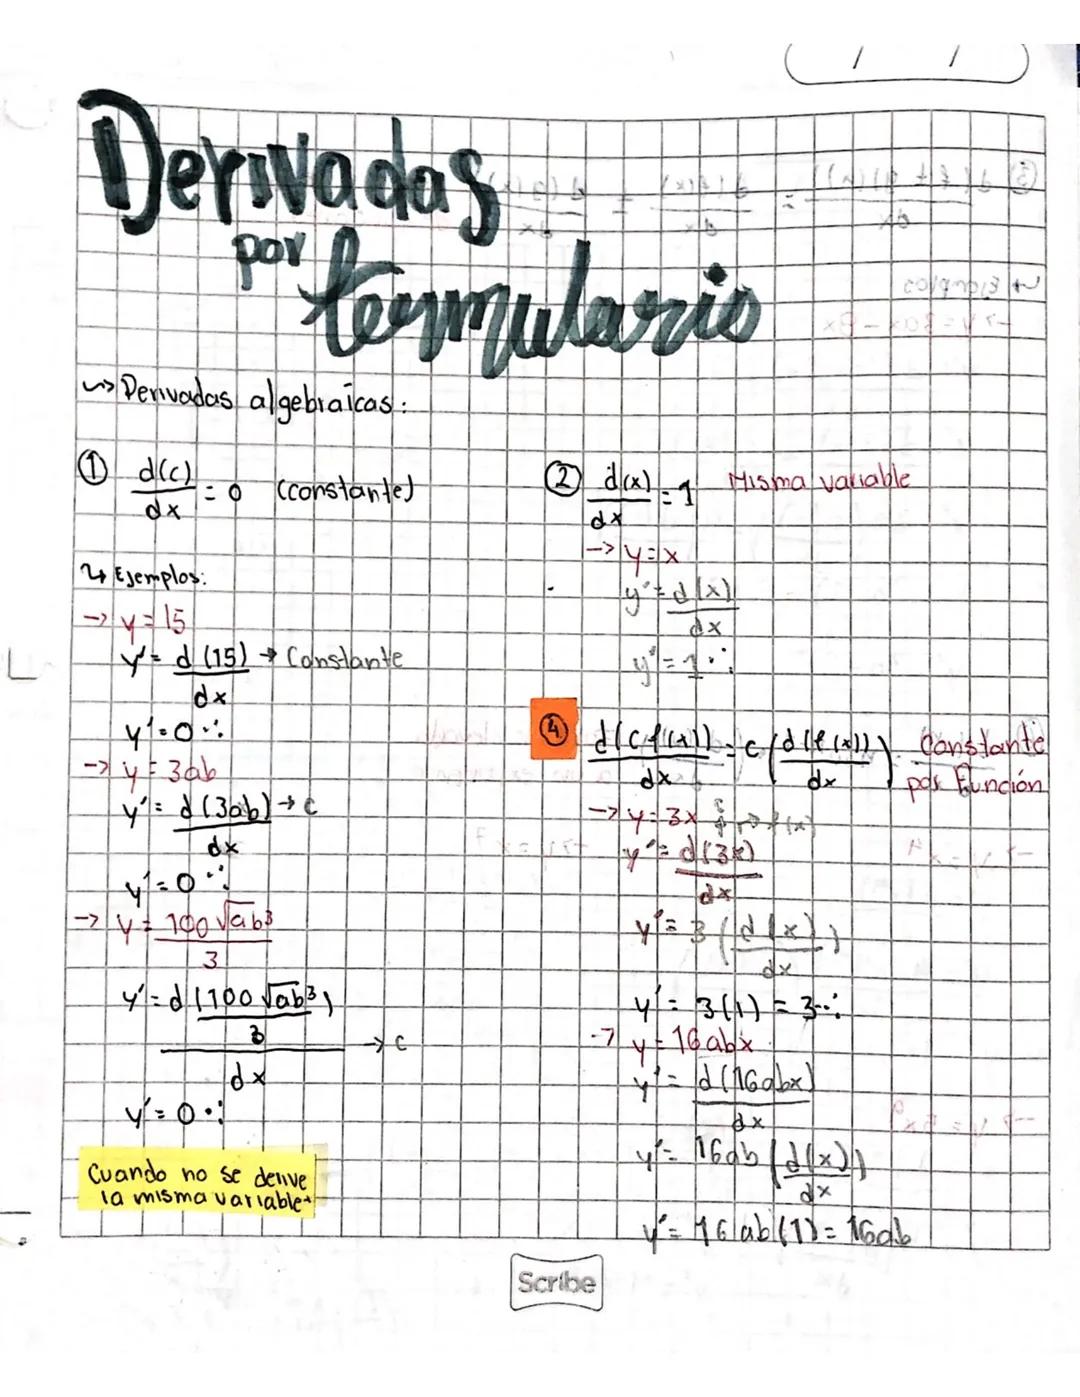 Derivadas
por formulario
~> Derivadas algebraicas:
① d(c)/dx = 0 (constante)
↳ Ejemplos:
-> y = 15
y' = d(15)/dx → Constante
y' = 0 ∴
-> y = 3ab
y' = d(3ab)/dx → c
y' = 0 ∴
-> y = 100√ab³/3
y' = d(100√ab³/3)/dx → c
y' = 0 ∴
Cuando no se derive
la misma variable
② d(x)/dx = 1 Misma variable
-> y = x
y' = d(x)/dx
y' = 1 ∴
④ d(c f(x))/dx = c (d(f(x))/dx) Constante
por Función
-> y = 3x → f(x)
y' = d(3x)/dx
y' = 3 (d(x)/dx)
y' = 3(1) = 3 ∴
-> y = 16abx
y' = d(16abx)/dx
y' = 16ab (d(x)/dx)
y' = 16ab(1) = 16ab
Scribe